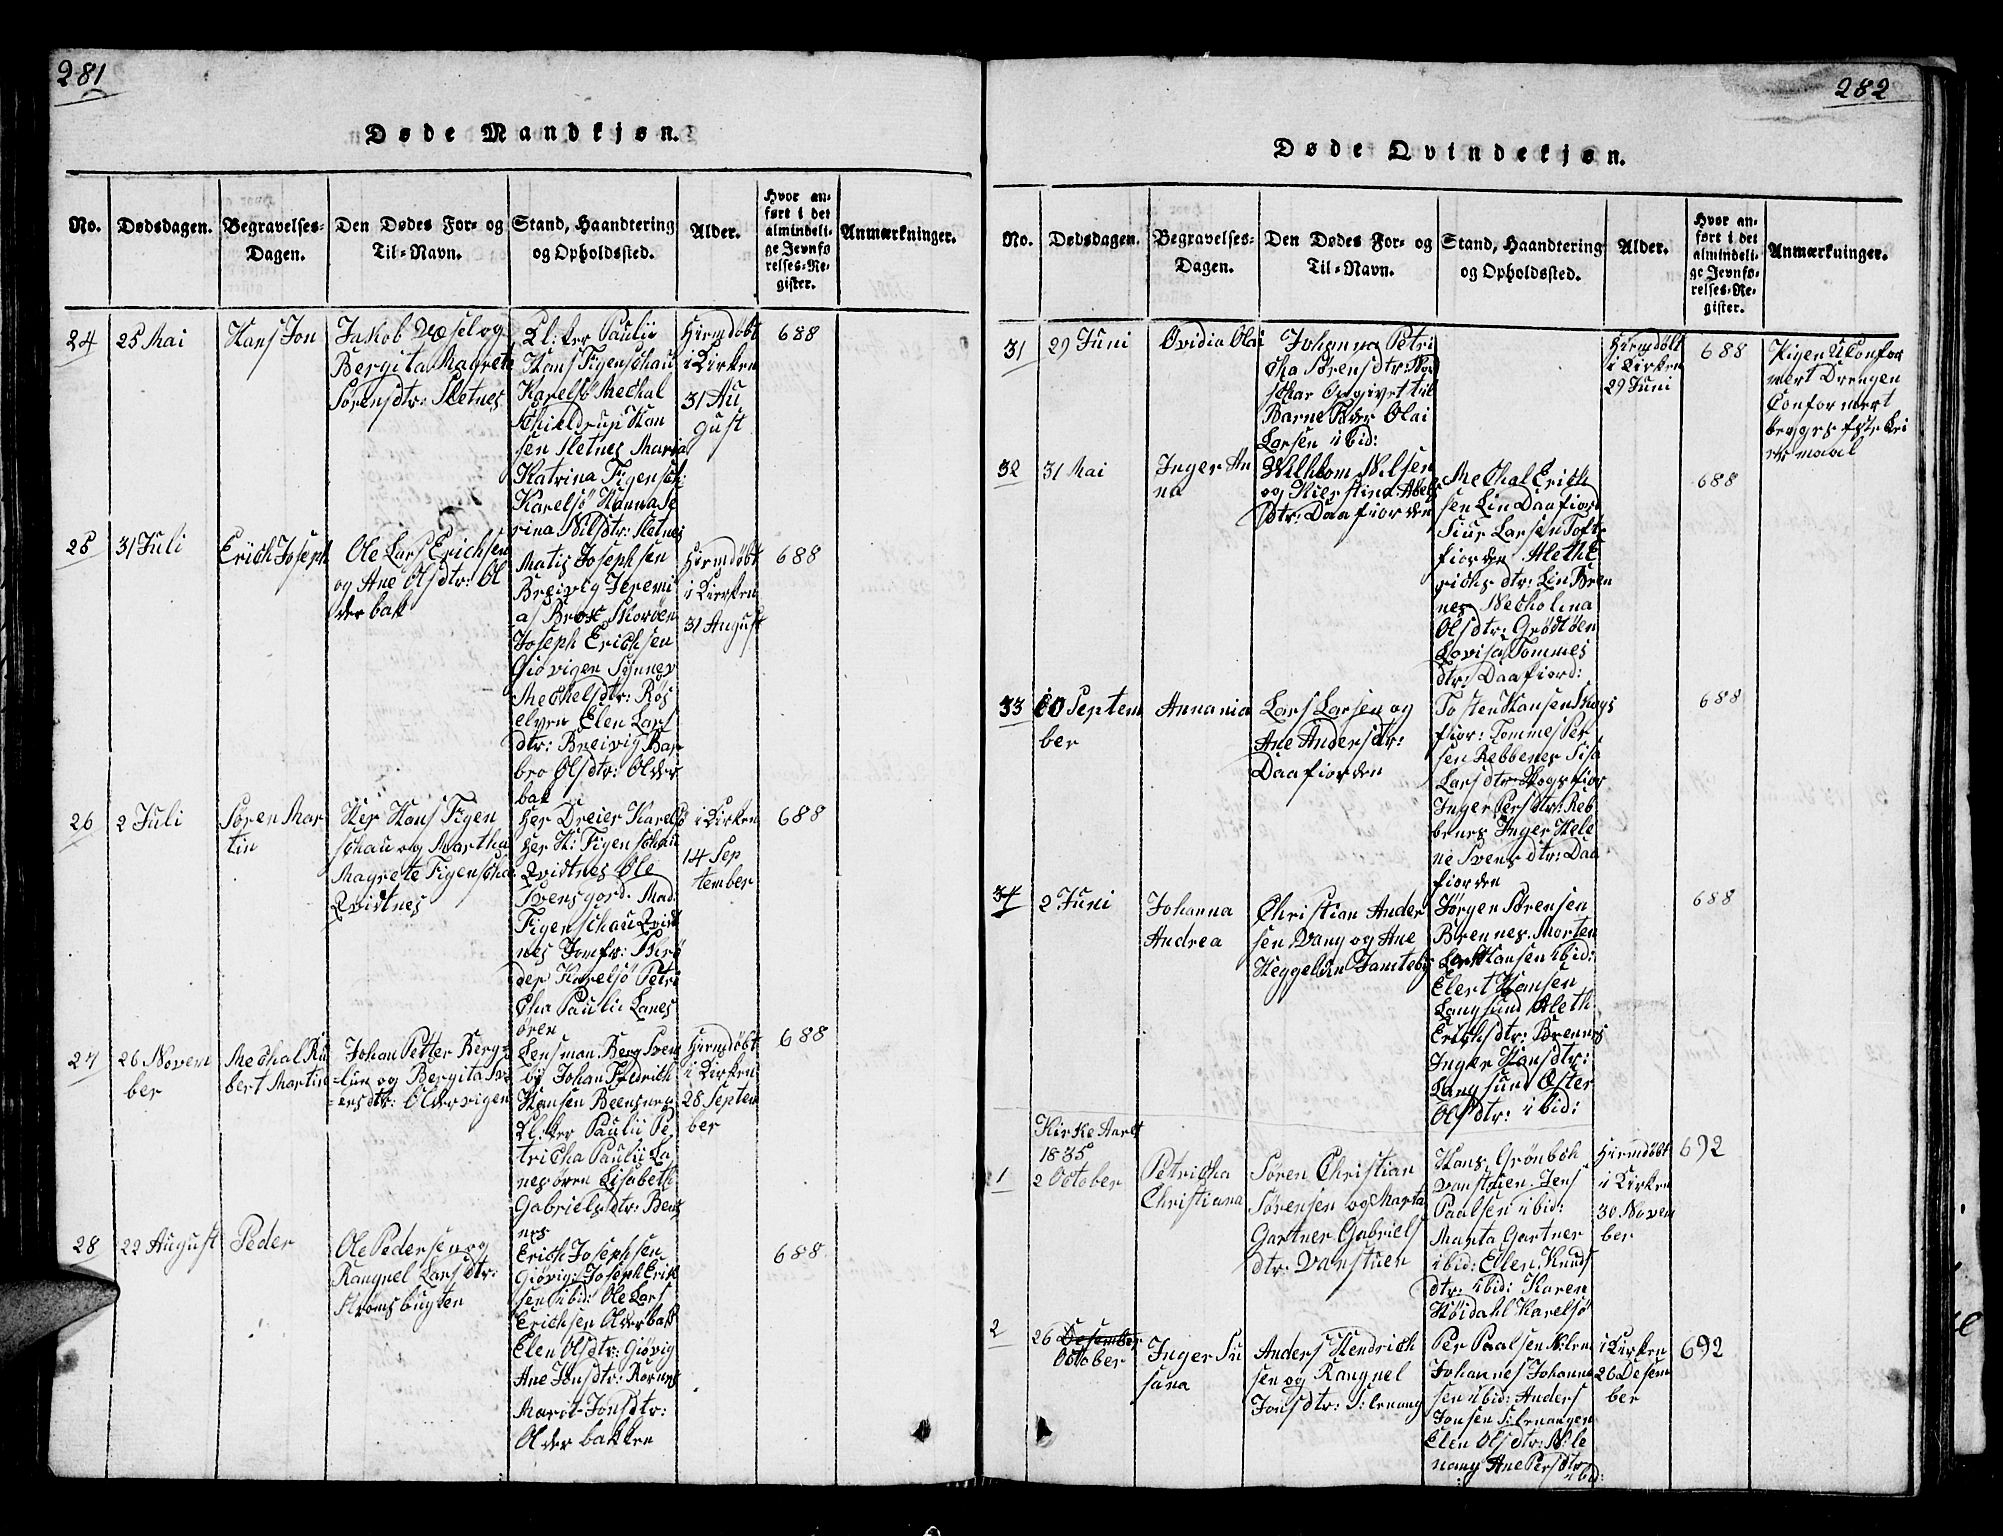 281
Døde Mandkjøn.
No.
Dødsdagen.
Begravelses-
Dagen.
Den Dødes For- og
Til-Navn.
Stand, Haandtering
og Opholdssted.
Alder.
Hvor an-
ført i det
almindeli-
ge Jevnfø
relses-Re-
gister.
Anmærkninger.
24
25 Mai
Hans Jon
Jakob Wæsel og
Bergita Magrete
Sørensdtr: Sletnes
Kl: ker Paulii
Hans Figenschau
Karelsö Mechal
Schieldrup Han
sen Sletnes Maria
Katrina Figensch:
Karelsö Hanna Se
rina Nilsdtr: Sletnes
Hiemdöbt
i Kirken
31 Au
gust
688
25
31 Juli
Erich Joseph
Ole Lars Erichsen
og Ane Olsdtr: Ol
derbak
Matis Josephsen
Breivig Jeremi
as Brox Skorøen
Joseph Erichsen
Giövigen Synnev
Mechelsdtr: Rös
elven Elen Lars
dtr: Breivig Bar
bro Olsdtr: Older
bak
Hiemdöbt
i Kirken
31 August
688
26
2 Juli
Sören Mar
tin
Her Hans Figen
schau og Martha
Magrete Figenscha
Qvidtnes
Her Dreier Karelsö
Her H: Figenschau
Qvidtnes Ole
Svensgord. Mad:
Figenschau Qvidt
nes Jomfr: Skrö
der Karelsö Petri
cha Paulii Lanes
ören
i Kirken
14 Sep
tember
688
27
26 Novem
ber
Mechal Ru
bert Martin
Johan Petter Berg=
lun og Bergita Iv
ersdtr: Oldervigen
Lensman Berg Svens
by Johan Fredrich
Hansen Beensnes
Kl: ker Paulii Pe
tricha Paulii La
nesören Lisabeth
Gabrielsdtr: Bens
nes
Hiemdöbt
i Kirken
28 Septem
ber
688
28
22 August
Peder
Ole Pedersen og
Rangnel Larsdtr:
Strömsbugten
Erich Josephsen
Giövig: Joseph Erik
sen ibid: Ole Lars
Erichsen Olderbak
Elen Olsdtr: Giövig
Ane Jonsdtr: Rornes
Marit Jonsdtr:
Olderbakken
688
282
Døde Qvindekjøn.
No.
Dødsdagen.
Begravelses-
Dagen.
Den Dødes For- og
Til-Navn.
Stand, Haandtering
og Opholdssted.
Alder.
Hvor an-
ført i det
almindeli-
ge Jevnfø-
relses-Re-
gister.
Anmærkninger.
31
29 Juni
Ovidia Olai
Johanna Petri
cha Sörensdtr:
schar Opgivet til
Barne Fader Olai
Larsen ibid:
Hiemdöbt
i Kirken
29 Juni
688
Pigen UConfor
mert Drengen
Conformert
begges
maal
32
31 Mai
Inger An
na
Wilhlom Nilsen
og Kierstina Abels
dtr: Daafiorden
Mechal Erich
sen Lin Daafiord
Siur Larsen Toft
fiorden Aleth E
richs dtr: Lin Bren
nes Necholina
Olsdtr: Grödtöen
Lovisa Tommes
dtr: Daafiord:
688
33
10 Septem
ber
Annania
Lars Larsen og
Ane Andersdtr:
Daafiorden
Tosten Hansen Skogs
fior: Tommes Per
sen Rebbenes Sisa
Larsdtr: Skogsfior
Inger Persdtr: Reb
benes Inger Hele
ne Svensdtr: Daa
fiorden
688
34
2 Juni
Johanna
Andrea
Christian Ander
sen Vang og Ane
Heggelun Jamteby
Jörgen Sörensen
Brennes. Morten
Lars Hansen ibid:
Elert Hansen
Langsund Aleth
Erichsdtr: Brennes
Inger Hansdtr:
Langsund Ester
Olsdtr: ibid:
688
Kirke Aaret
1835
1
2 October
Petricha
Christiana
Sören Christian
Sörensen og Marta
Gartner Gabriels
dtr: Vanstuen
Hans Grönbch
Vanstuen. Jens
Paalsen ibid:
Marta Gartner
ibid: Elen Knuds
dtr: ibid: Karen
Höidahl Karelsö
Hiemdöbt
i Kirken
30 Novem
ber
692
2
26 Desember
October
Inger Su
sana
Anders Hendrich
sen og Rangnel
Jonsdtr: S: lenang
Per Paalsen N: len
Johannes Johanne
sen ibid: Anders
Jonsen S: lenangen
Elen Olsdtr: N: le
nang Ane Persdtr
ibid:
i Kirken
26 Desem
ber
692